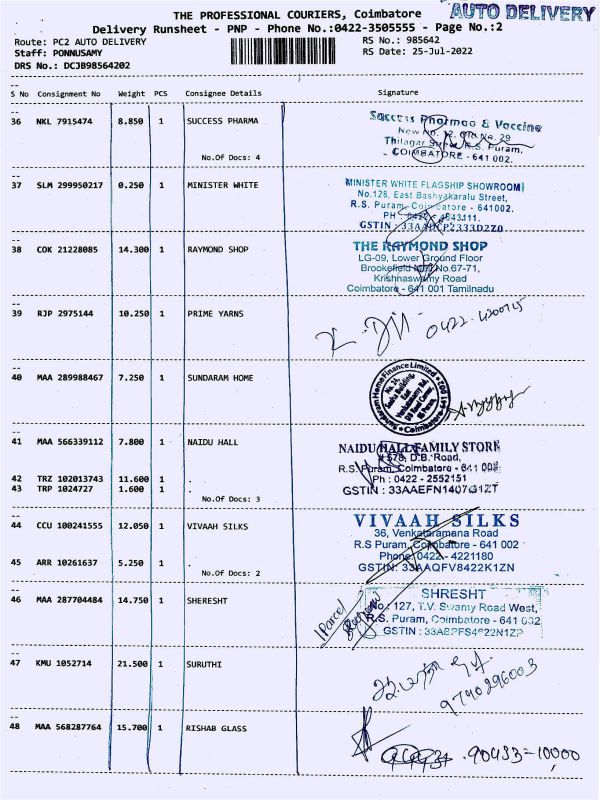 THE PROFESSIONAL COURIERS, Coimbatore
AUTO DELIVERY
Delivery Runsheet - PNP - Phone No.:0422-3505555 - Page No.:2
Route: PC2 AUTO DELIVERY
RS No.: 985642
Staff: PONNUSAMY
RS Date: 25-Jul-2022
DRS No.: DCJB98564202
S No Consignment No Weight PCS Consignee Details Signature
36 NKL 7915474 8.850 1 SUCCESS PHARMA
No.Of Docs: 4
Success Pharmaa & Vaccine
New No. 12, Old No. 29
R.S. Puram,
COIMBATORE - 641 002.
37 SLM 299950217 0.250 1 MINISTER WHITE
MINISTER WHITE FLAGSHIP SHOWROOM
No.128, East Bashyakaralu Street,
R.S. Puram, Coimbatore - 641002.
PH : 0422 - 4543111.
GSTIN :
38 COK 21228085 14.300 1 RAYMOND SHOP
THE RAYMOND SHOP
LG-09, Lower Ground Floor
Brookefield No.67-71,
Krishnaswamy Road
Coimbatore - 641 001 Tamilnadu
39 RJP 2975144 10.250 1 PRIME YARNS
40 MAA 289988467 7.250 1 SUNDARAM HOME
Sundaram Home Finance Limited
Coimbatore-641 002
41 MAA 566339112 7.800 1 NAIDU HALL
42 TRZ 102013743 11.600 1 .
43 TRP 1024727 1.600 1 .
No.Of Docs: 3
NAIDU HALL FAMILY STORE
# 578, D.B. Road,
R.S. Puram, Coimbatore - 641 002
Ph : 0422 - 2552151
GSTIN : 33AAEFN1407G1ZT
44 CCU 100241555 12.050 1 VIVAAH SILKS
45 ARR 10261637 5.250 1 .
No.Of Docs: 2
VIVAAH SILKS
36, Venkataramana Road
R.S Puram, Coimbatore - 641 002
Phone: 0422 - 4221180
GSTIN: 33AAQFV8422K1ZN
46 MAA 287704484 14.750 1 SHERESHT
1 Parcel
SHRESHT
No: 127, T.V. Swamy Road West,
R.S. Puram, Coimbatore - 641 002
GSTIN : 33ABPFS4922N1ZP
47 KMU 1052714 21.500 1 SURUTHI
9790296003
48 MAA 568287764 15.700 1 RISHAB GLASS